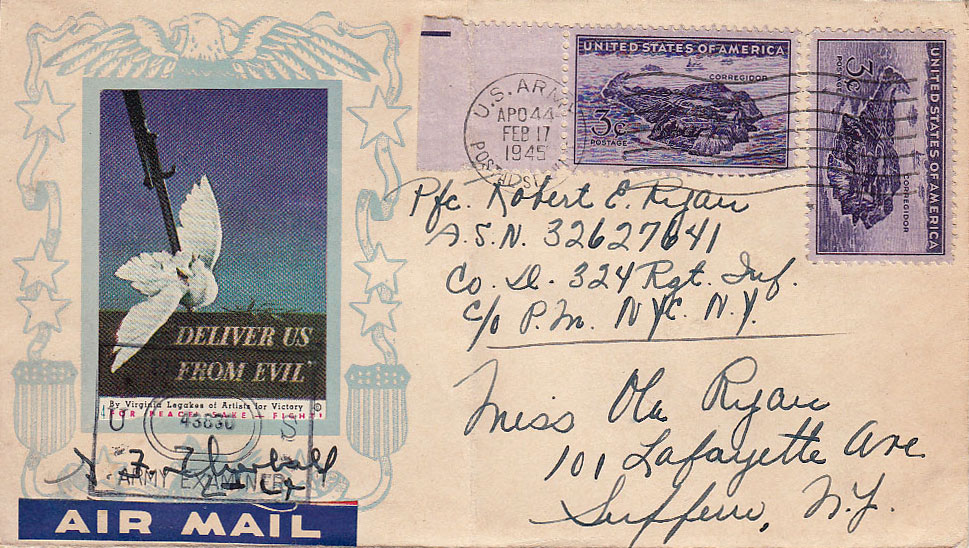 U.S. ARMY
APO 44
FEB 17
1945
UNITED STATES OF AMERICA
CORREGIDOR
3¢
POSTAGE
UNITED STATES OF AMERICA
CORREGIDOR
3¢
POSTAGE
Pfc. Robert E. Ryan
A.S.N. 32627641
Co. D. 324 Rgt. Inf.
c/o P.M. NYC. N.Y.
Miss Ola Ryan
101 Lafayette Ave
Suffern, N.Y.
DELIVER US
FROM EVIL
By Virginia Legakes of Artists for Victory
FOR PEACE SAKE — FIGHT!
U S
ARMY EXAMINER
AIR MAIL